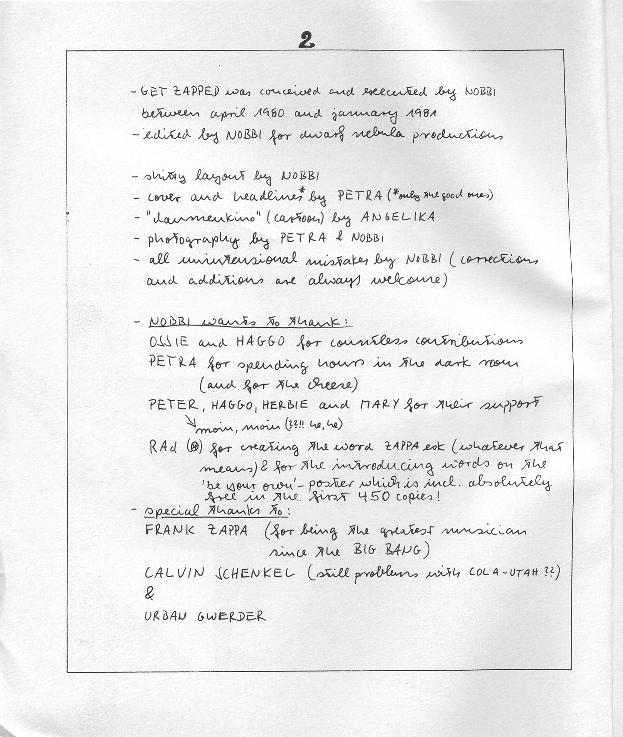 2
- GET ZAPPED was conceived and executed by NOBBI
between april 1980 and january 1981
- edited by NOBBI for dwarf nebula productions
- shitty layout by NOBBI
- cover and headlines* by PETRA (*only the good ones)
- "daumenkino" (cartoon) by ANGELIKA
- photography by PETRA & NOBBI
- all unintensional mistakes by NOBBI (corrections
and additions are always welcome)
- NOBBI wants to thank:
OSSIE and HAGGO for countless contributions
PETRA for spending hours in the dark room
(and for the cheese)
PETER, HAGGO, HERBIE and MARY for their support
moin, moin (??!! he, he)
RAd for creating the word ZAPPAesk (whatever that
means) & for the introducing words on the
'be your own'- poster which is incl. absolutely
free in the first 450 copies!
- special thanks to:
FRANK ZAPPA (for being the greatest musician
since the BIG BANG)
CALVIN SCHENKEL (still problems with COLA-UTAH ??)
&
URBAN GWERDER